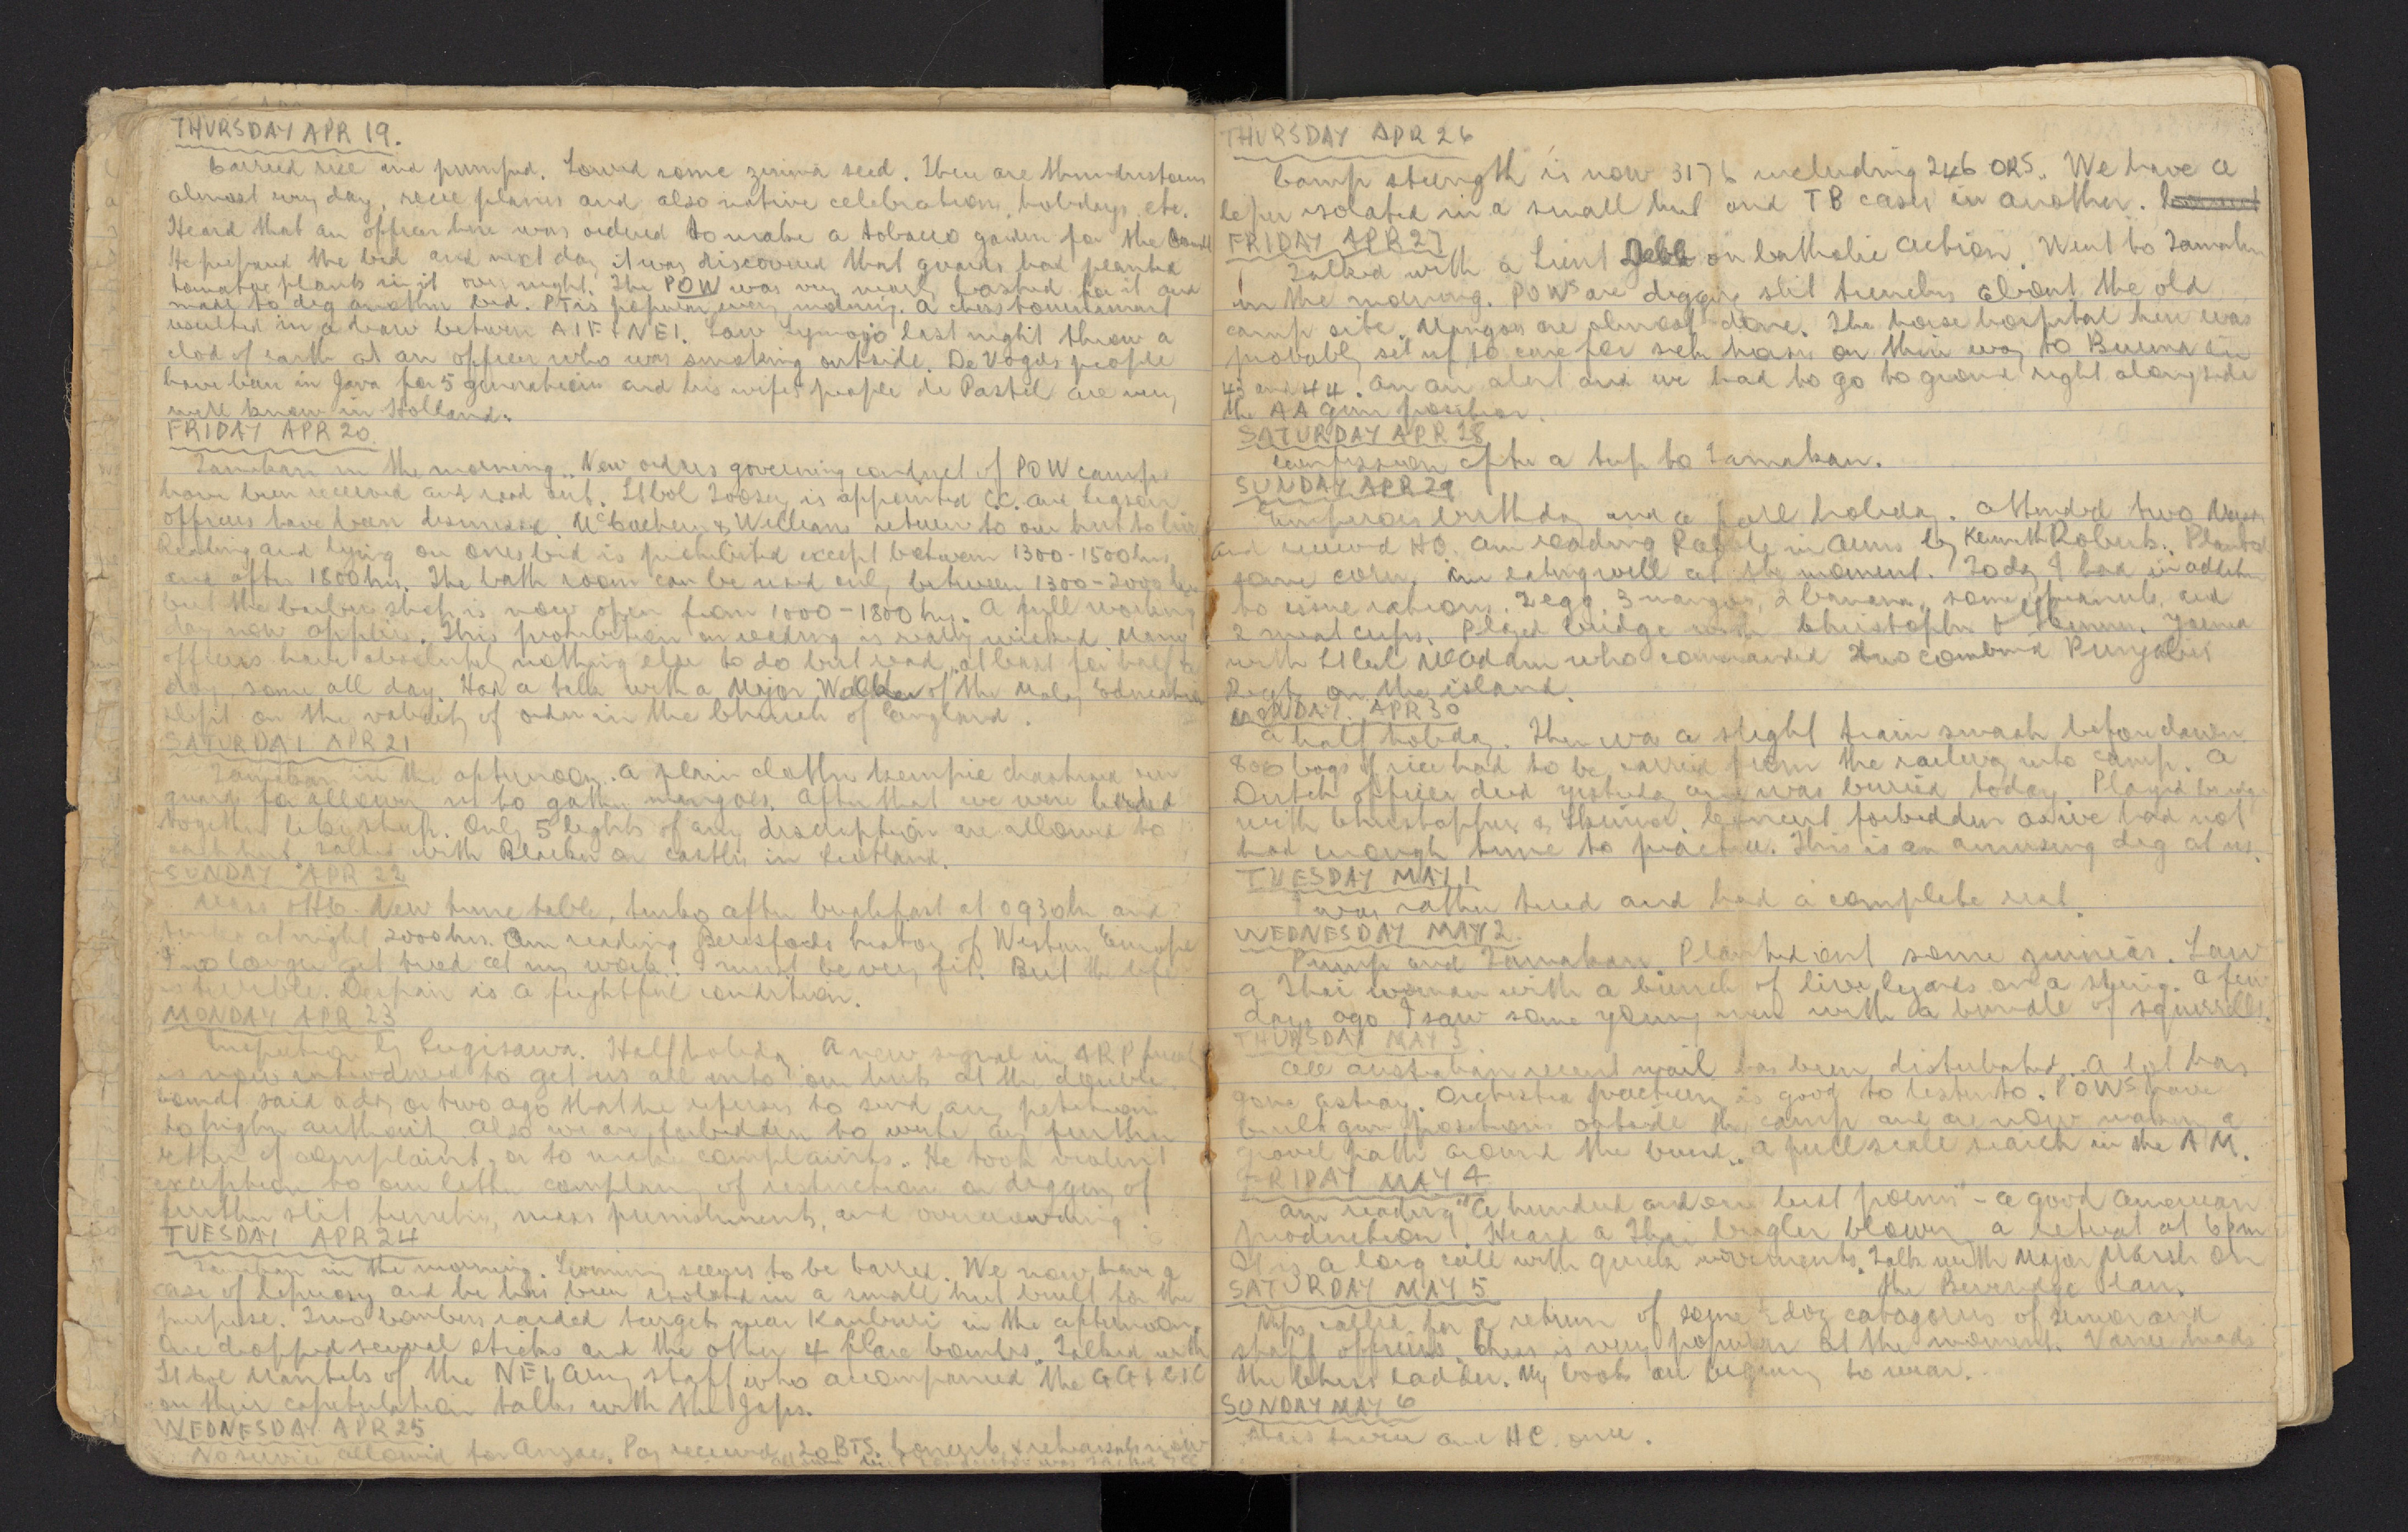 THURSDAY APR 19.
Carried rice and pumped. Sowed some zinnia seed. There are thunderstorms
almost every day, recce planes and also native celebrations, holidays, etc.
Heard that an officer here was ordered to make a tobacco garden for the
He prepared the bed and next day it was discovered that guards had planted
tomatoe plants in it over night. The POW was very nearly bashed for it and
made to dig another bed. PT is popular every morning. A chess tournament
resulted in a draw between AIF & NEI. Saw last night throw a
clod of earth at an officer who was smoking outside. De Vogels people
have been in Java for 5 generations and his wifes people de Pastel are very
well know in Holland.
FRIDAY APR 20
Tamakan in the morning. New orders governing conduct of POW camps
have been received and read out. Lt Col Toosey is appointed C.C. and liaison
officers have been dismissed. McEachern & Williams return to our hut to live
Reading and lying on ones bed is prohibited except between 1300-1500 hrs
and after 1800 hrs. The bath room can be used only between 1300-2000 hrs
but the barber shop is now open from 1000-1800 hrs. A full working
day now applies. This prohibition on reading is really wicked. Many
officers have absolutely nothing else to do but read, at least for half the
day, some all day. Had a talk with a Major Walker of the Malay Education
Dept on the validity of orders in the Church of England.
SATURDAY APR 21
Tamakan in the afternoon. A plain clothes kempie chastised our
guard for allowing us to gather mangoes. After that we were herded
together like sheep. Only 5 lights of any description are allowed to
each hut. Talked with Blacker on castles in Scotland.
SUNDAY APR 22
Mass & HC. New time table, tenko after breakfast at 0930 hr and
tenko at night 2000 hrs. Am reading Beresfords history of Western Europe
I no longer get tired at my work. I must be very fit. But the life
is terrible. Despair is a frightful condition.
MONDAY APR 23
Inspection by Sugisawa. Half holiday. A new signal in ARP
is now introduced to get us all into our huts at the double.
Comdt said a day or two ago that he refuses to send any petition
to higher authority. Also we are forbidden to write any further
letters of complaint, or to make complaints. He took violent
exception to our letter complaining of restriction on digging of
further slit trenches, mass punishment, and overcrowding.
TUESDAY APR 24
Tamakan in the morning. Swimming seems to be barred. We now have a
case of leprosy and he has been isolated in a small hut built for the
purpose. Two bombers raided targets near Kanburi in the afternoon.
One dropped several sticks and the other 4 flare bombs. Talked with
Lt Col Mantels of the NEI Army staff who accompanied the GG & CIC
on their capitulation talks with the Japs.
WEDNESDAY APR 25
No service allowed for Anzac. Pay received 20 BTS. Concerts & rehearsals now
THURSDAY APR 26
Camp strength is now 3176 including 246 ORS. We have a
leper isolated in a small hut and TB cases in another.
FRIDAY APR 27
Talked with a Lieut Jebb on Catholic Action. Went to Tamakan
in the morning. POWs are digging slit trenches about the old
camp site. Mangoes are almost done. The horse hospital here was
probably set up to care for sick horses on their way to Burma in
43 and 44. On an alert and we had to go to ground right alongside
the AA gun position.
SATURDAY APR 28
Confession after a trip to Tamakan.
SUNDAY APR 29
Emperors birthday and a full holiday. Attended two Masses
and received HC. Am reading Rabble in Arms by Kenneth Roberts. Planted
some corn. Am eating well at the moment. Today I had in addition
to issue rations, 2 egg, 3 mangoes, 2 banana, some peanuts, and
2 meat cups. Played bridge with Christopher &
with Lt Col McAdam who commanded two combined Punjabis
Regts on the island.
MONDAY. APR 30
A half holiday. There was a slight train smash before dawn
800 bags of rice had to be carried from the railway into camp. A
Dutch officer died yesterday and was buried today. Played bridge
with Christopher & Concert forbidden as we had not
had enough time to practice. This is an amusing dig at us.
TUESDAY MAY 1
I was rather tired and had a complete rest.
WEDNESDAY MAY 2.
Pump and Tamakan. Planted out some zinnias. Saw
a Thai woman with a bunch of live lizards on a string. A few
days ago I saw some young men with a bundle of squirrells.
THURSDAY MAY 3
All Australian recent mail has been distributed. A lot has
gone astray. Orchestra practicing is good to listen to. POWs have
built gun positions outside the camp and are now making a
gravel path around the bund. A full scale search in the AM.
FRIDAY MAY 4
Am reading "A hundred and one best poems" - a good American
production. Heard a Thai bugler blowing a retreat at 6pm
It is a long call with quick movements. Talk with Major Marsh on
the Beveridge Plan.
SATURDAY MAY 5
Nips called for a return of some 2 doz catagories of senior and
staff officers. Chess is very popular at the moment. Vance heads
the chess ladder. My boots are begining to wear.
SUNDAY MAY 6
Mass twice and HC. once.